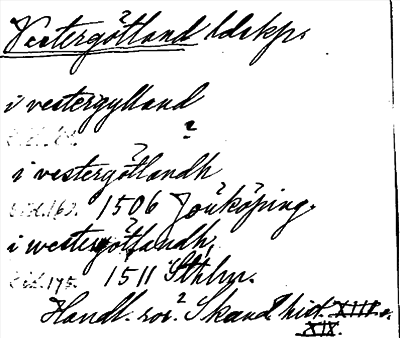 Vestergötland ldskp.
i vestergylland
?
i vestergötlandh
Eid. 163. 1506 Jönköping.
i westergötlandh,
Eid. 175. 1511 Sthlm.
Handl. rör. Skand. hist. XIII o.
XIX.